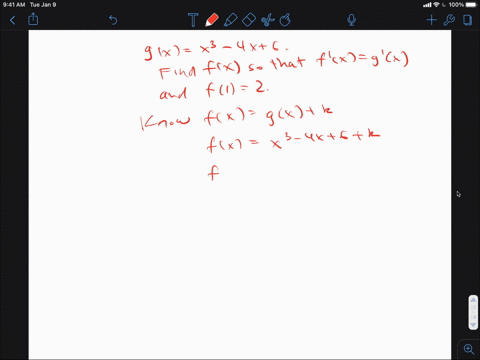 9:41 AM Tue Jan 9
100%
g(x) = x³ - 4x + 6.
Find f(x) so that f'(x) = g'(x)
and f(1) = 2.
Know f(x) = g(x) + k
f(x) = x³ - 4x + 6 + k
f